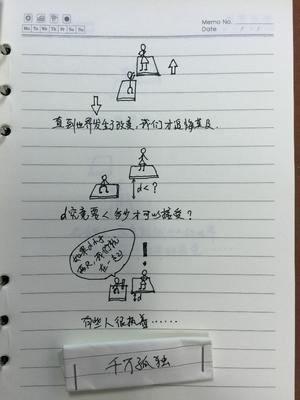 Memo No.
Mo Tu We Th Fr Sa Su
Date / /
直到世界发生了改变,我们才追悔莫及.
d<?
d究竟要<多少才可以接受?
如果d小于
我们就
在一起
!
d
有些人很执着……
千万孤独